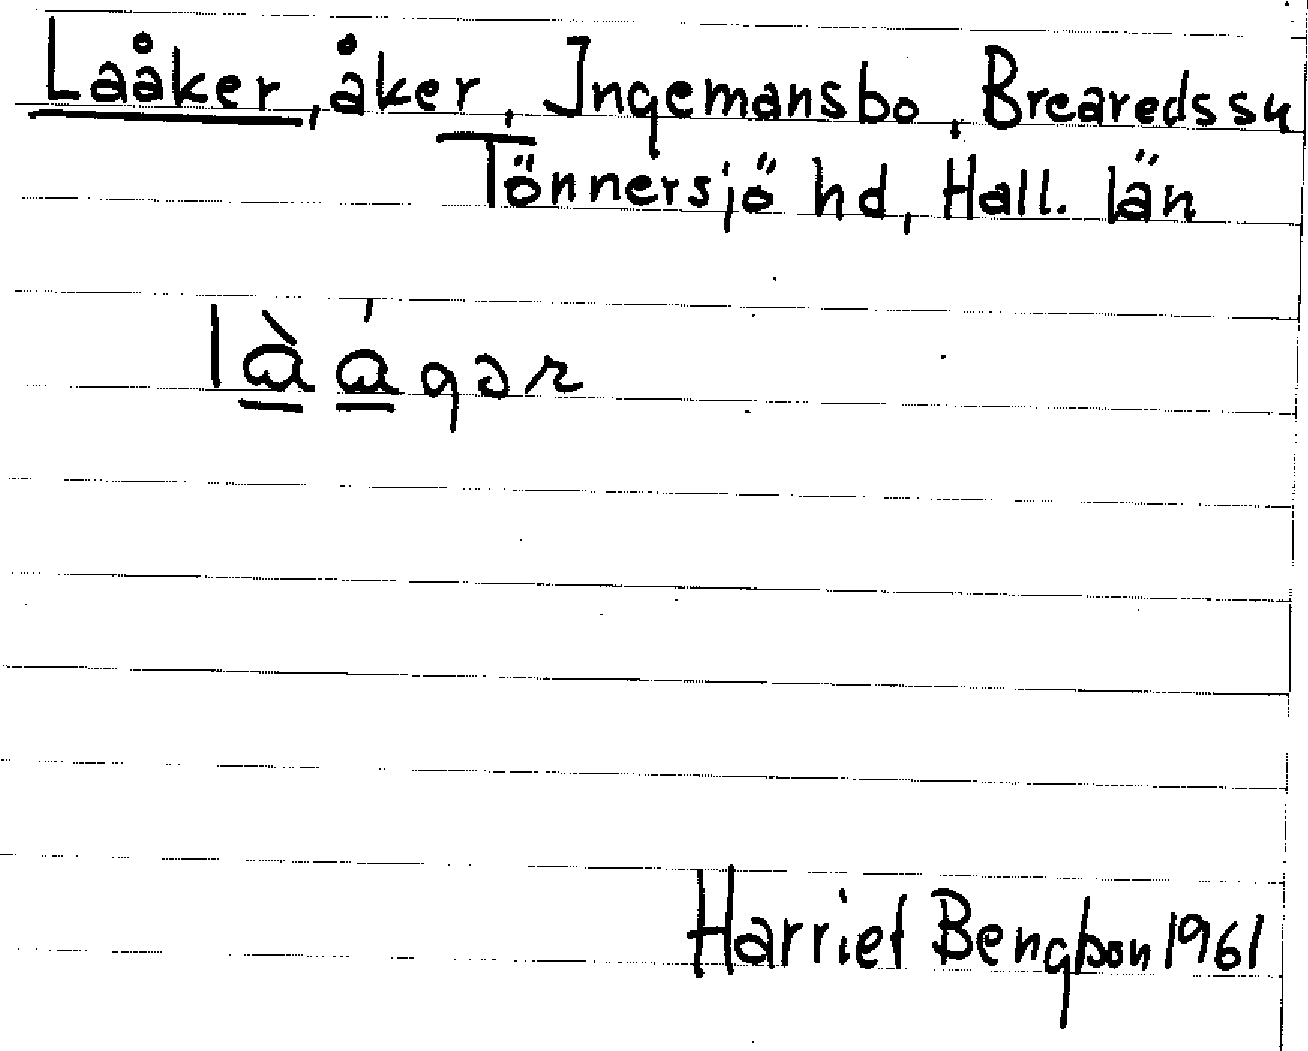 Laåker, åker, Ingemansbo, Breareds sn
Tönnersjö hd, Hall. län
lɑ̀ ɑ́ gər
Harriet Bengtson 1961